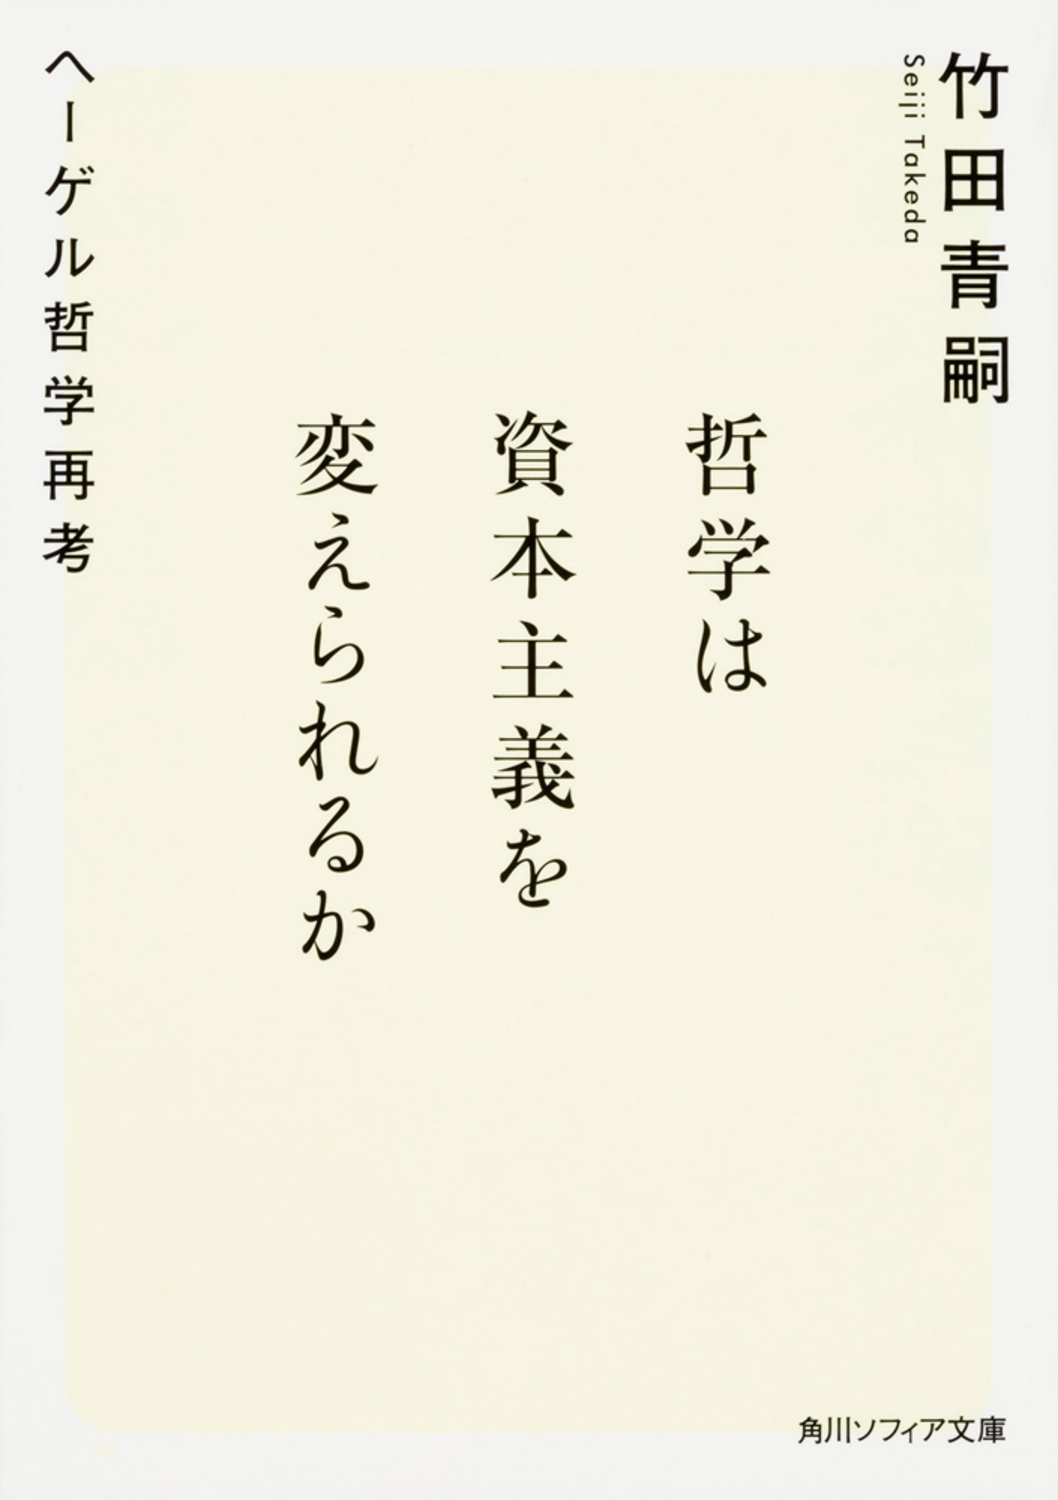 竹田青嗣
Seiji Takeda
哲学は
資本主義を
変えられるか
ヘーゲル哲学再考
角川ソフィア文庫